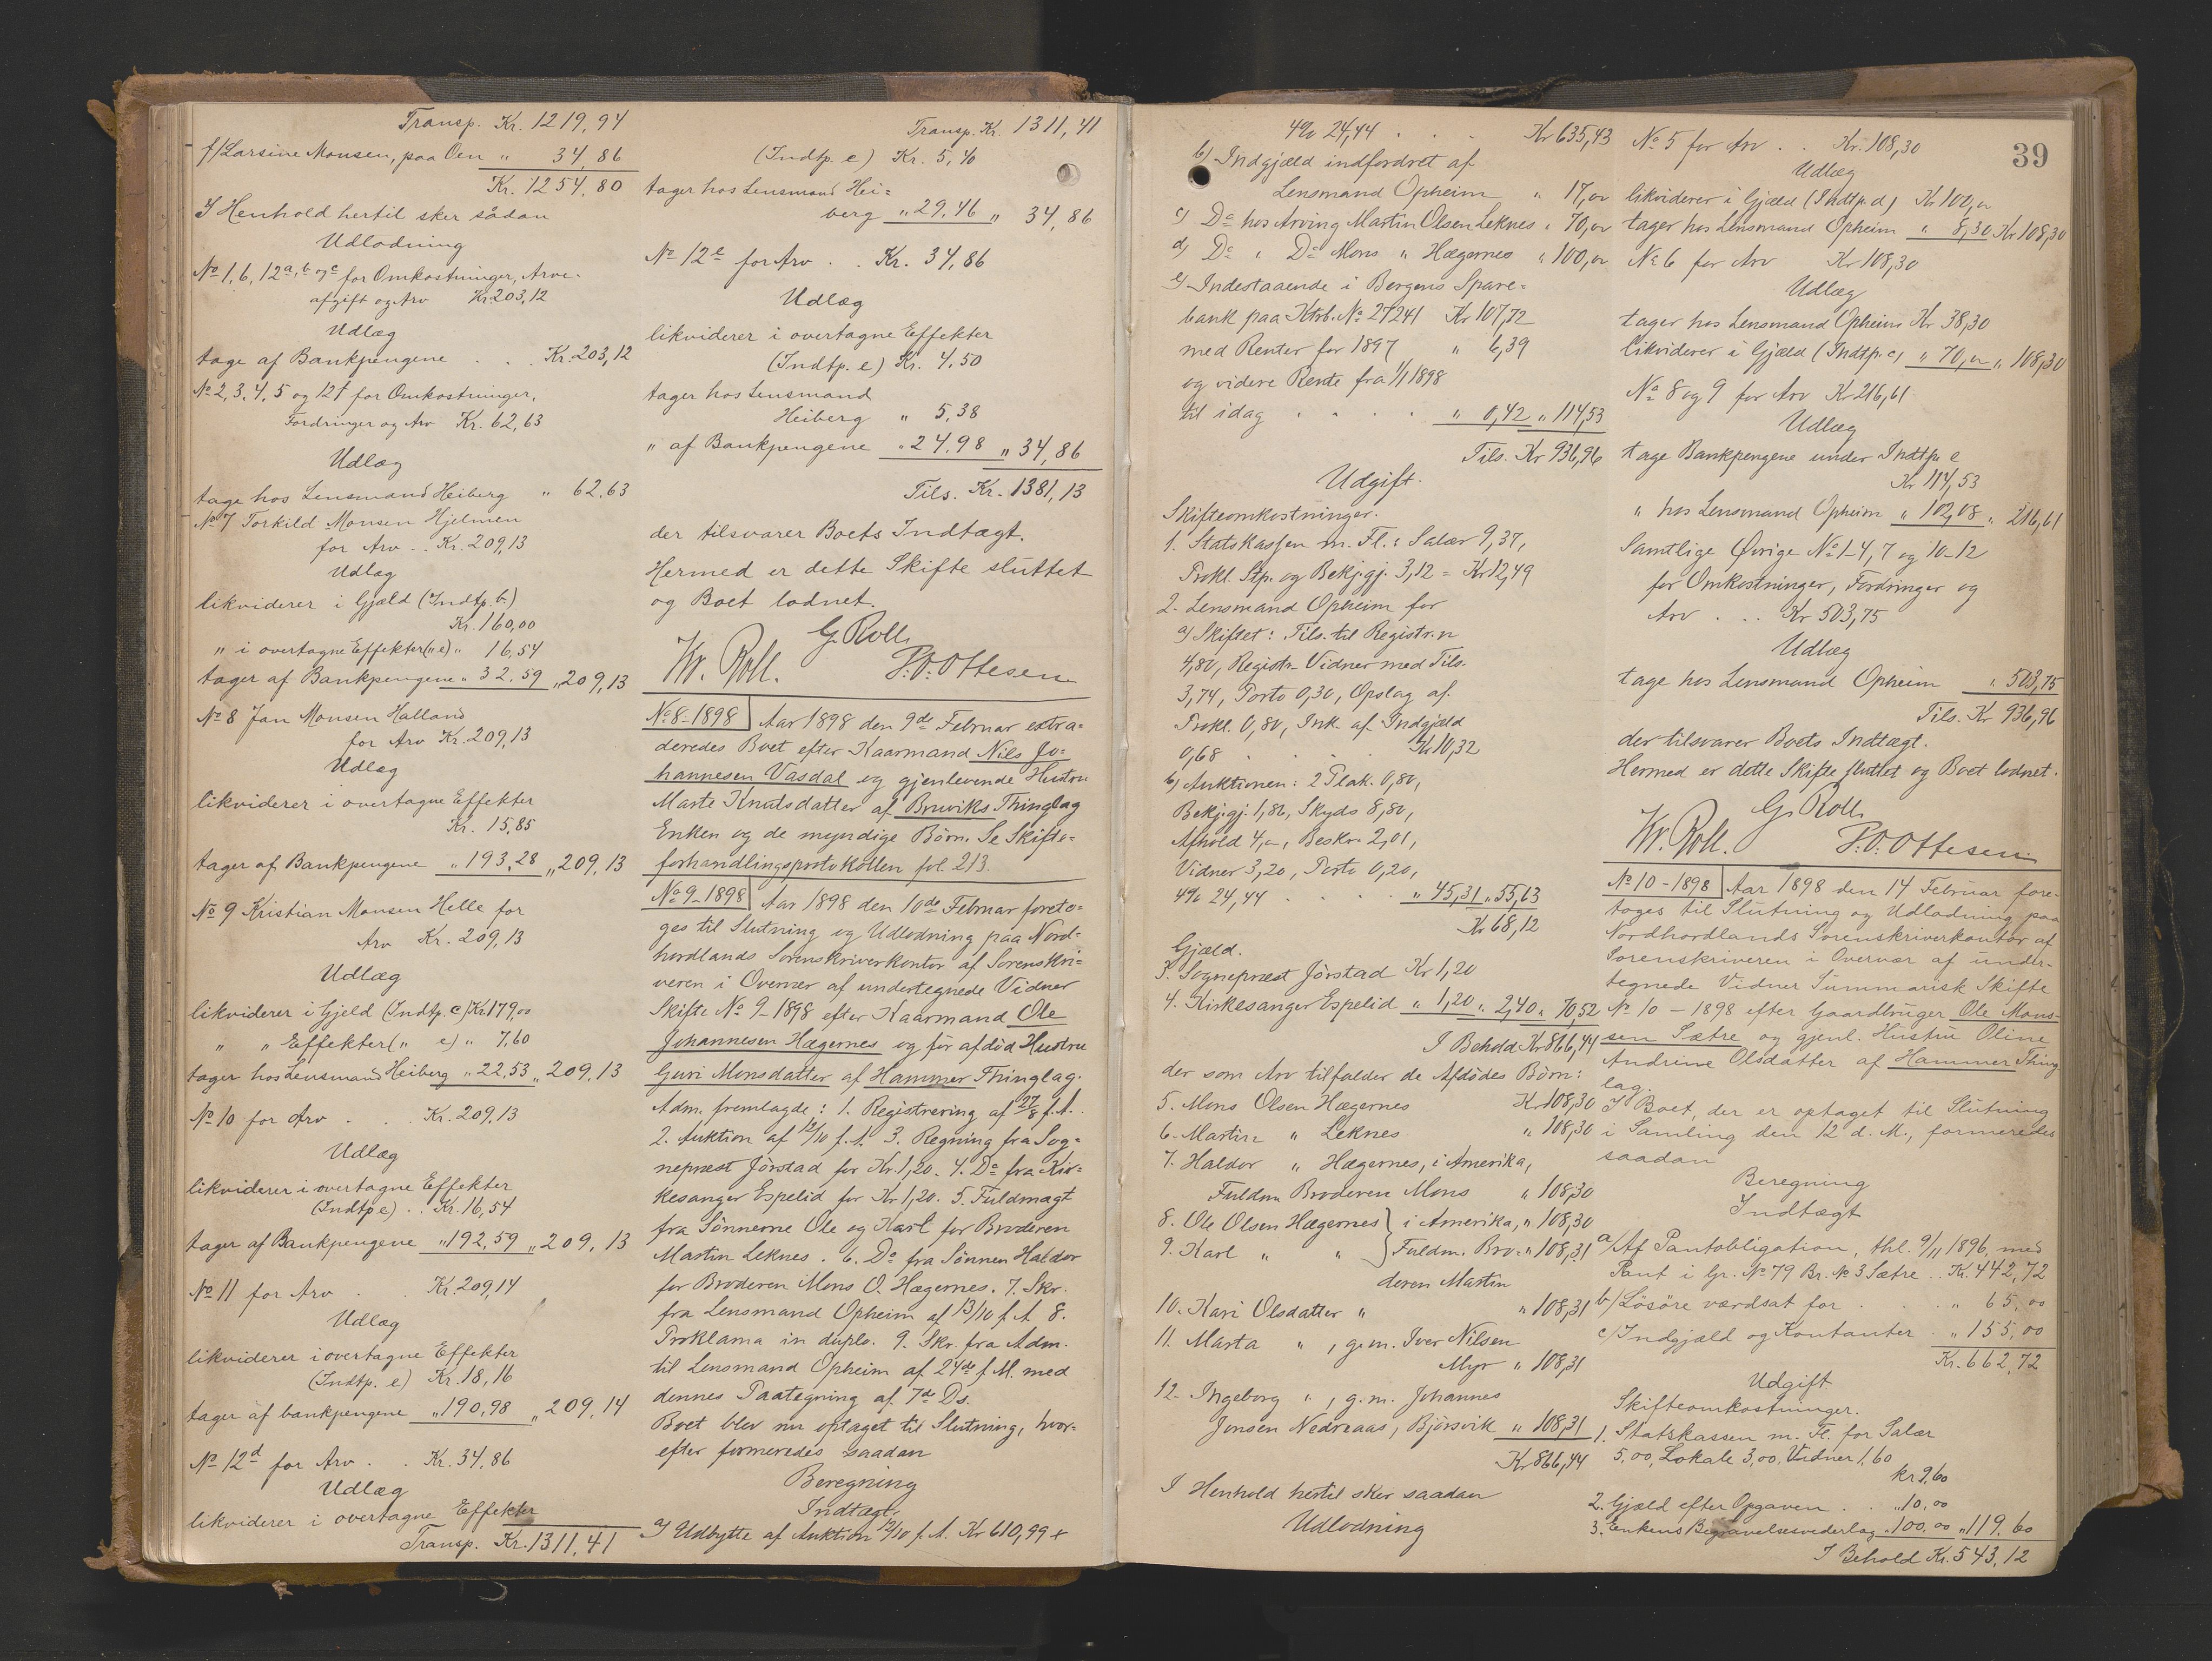 Transp. Kr. 1219,94
f/ Larsine Monsen, paa Øen " 34,86
Kr. 1254,80
I Henhold hertil sker sådan
Udlodning
No 1, 6, 12 a, b og c for Omkostninger, Arve-
afgift og Arv Kr. 203,12
Udlæg
tage af Bankpengene . . Kr. 203,12
No 2, 3, 4, 5 og 12 f for Omkostninger,
Fordringer og Arv Kr. 62,63
Udlæg
tage hos Lensmand Heiberg " 62,63
No 7 Torkild Monsen Hjelmen
for Arv .. Kr. 209,13
Udlæg
likviderer i Gjæld (Indtp. b.)
Kr. 160,00
" i overtagne Effekter (" e) " 16,54
tager af Bankpengene " 32,59 " 209,13
No 8 Jan Monsen Halland
for Arv Kr. 209,13
Udlæg
likviderer i overtagne Effekter
Kr. 15,85
tager af Bankpengene " 193,28 " 209,13
No 9 Kristian Monsen Helle for
Arv Kr. 209,13
Udlæg
likviderer i Gjeld (Indtp. c) Kr 179,00
" " Effekter (" e) " 7,60
tager hos Lensmand Heiberg " 22,53 " 209,13
No 10 for Arv . . Kr. 209,13
Udlæg
likviderer i overtagne Effekter
(Indtp e) . . Kr. 16,54
tager af Bankpengene " 192,59 " 209,13
No 11 for Arv . . Kr. 209,14
Udlæg
likviderer i overtagne Effekter
(Indtp. e) Kr. 18,16
tager af bankpengene " 190,98 " 209,14
No 12 d for Arv . . Kr. 34,86
Udlæg
likviderer i overtagne Effekter
Transp. Kr. 1311,41
Transp. Kr. 1311,41
(Indtp. e) Kr. 5,40
tager hos Lensmand Hei=
berg " 29,46 " 34,86
No 12 e for Arv . . Kr. 34,86
Udlæg
likviderer i overtagne Effekter
(Indtp. e) Kr. 4,50
tager hos Lensmand
Heiberg " 5,38
" af Bankpengene " 24,98 " 34,86
Tils. Kr. 1381,13
der tilsvarer Boets Indtægt.
Hermed er dette Skifte sluttet
og Boet lodnet.
G. Roll.
Kr. Roll. P. O. Ottesen
No 8-1898 Aar 1898 den 9de Februar extra=
deredes Boet efter Kaarmand Nils Jo=
hannesen Vasdal og gjenlevende Hustru
Marte Knutsdatter af Bruviks Thinglag
Enken og de myndige Børn. Se Skifte=
forhandlingsprotokollen fol. 213.
No 9-1898 Aar 1898 den 10de Februar foreto=
ges til Slutning og Udlodning paa Nord=
hordlands Sorenskriverkontor af Sorenskri=
veren i Overvær af undertegnede Vidner
Skifte No 9-1898 efter Kaarmand Ole
Johannesen Hægernes og før afdød Hustru
Guri Monsdatter af Hammer Thinglag.
Adm. fremlagde: 1. Registrering af 27/8 f. A.
2. Auktion af 12/10 f. A. 3. Regning fra Sog=
neprest Jörstad for Kr. 1,20. 4. Do fra Kir=
kesanger Espelid for Kr 1,20. 5. Fuldmagt
fra Sönnerne Ole og Karl for Broderen
Martin Leknes. 6. Do fra Sönnen Haldor
for Broderen Mons O. Hægernes. 7. Skr.
fra Lensmand Opheim af 13/10 f. A 8.
Proklama in duplo. 9. Skr. fra Adm.
til Lensmand Opheim af 24de f M. med
dennes Paategning af 7de Ds.
Boet blev nu optaget til Slutning, hvor=
efter formeredes saadan
Beregning
Indtægt.
a/ Udbytte af Auktion 12/10 f. A. Kr 610,99 +
39
4% 24,44 . . . Kr 635,43
b) Indgjæld indfordret af
Lensmand Opheim " 17,00
c) Do hos Arving Martin Olsen Leknes " 70,00
d) Do " Do Mons " Hægernes " 100,00
e) Indestaaende i Bergens Spare=
bank paa Ktrb. No 27241 Kr 107,72
med Renter for 1897 " 6,39
og videre Rente fra 1/1 1898
til idag . . . . " 0,42 " 114,53
Tils. Kr 936,96
Udgift.
Skifteomkostninger.
1. Statskassen m. Fl.: Salær 9,37,
Prokl. Stp. og Bekj.gj. 3,12 = Kr 12,49
2. Lensmand Opheim for
a) Skiftet: Tils. til Registr.n
4,80, Registr. Vidner med Tils.
3,74, Porto 0,30, Opslag af
Prokl. 0,80, Ink. af Indgjæld
0,68 . . . Kr 10,32
b) Auktionen: 2 Plak. 0,80,
Bekj.gj. 1,86, Skyds 8,80,
Afhold 4,00, Beskr. 2,01,
Vidner 3,20, Porto 0,20,
4% 24,44 . . . . " 45,31 " 55,63
Kr 68,12
Gjæld.
3. Sogneprest Jörstad Kr 1,20
4. Kirkesanger Espelid " 1,20 " 2,40 " 70,52
I Behold Kr 866,44
der som Arv tilfalder de Afdödes Börn:
5. Mons Olsen Hægernes Kr 108,30
6. Martin " Leknes " 108,30
7. Haldor " Hægernes, i Amerika,
Fuldm. Broderen Mons " 108,30
8. Ole Olsen Hægernes } i Amerika, " 108,30
9. Karl " " } Fuldm. Bro= " 108,31
deren Martin
10. Kari Olsdatter " " 108,31
11. Marta " , g. m. Iver Nilsen
Myr " 108,31
12. Ingeborg " , g. m. Johannes
Jonsen Nedreaas, Björsvik " 108,31
Kr 866,44
I Henhold hertil sker saadan
Udlodning
No 5 for Arv . . Kr. 108,30
Udlæg
likviderer i Gjæld (Indtp. d) Kr 100,00
tager hos Lensmand Opheim " 8,30 Kr 108,30
No 6 for Arv Kr 108,30
Udlæg
tager hos Lensmand Opheim Kr 38,30
likviderer i Gjæld (Indtp. c) " 70,00 " 108,30
No 8 og 9 for Arv Kr 216,61
Udlæg
tage Bankpengene under Indtp. e
Kr 114,53
" hos Lensmand Opheim " 102,08 " 216,61
Samtlige Øvrige No 1-4, 7 og 10-12
for Omkostninger, Fordringer og
Arv . . . Kr 503,75
Udlæg
tage hos Lensmand Opheim " 503,75
Tils. Kr 936,96
der tilsvarer Boets Indtægt.
Hermed er dette Skifte sluttet og Boet lodnet.
G. Roll.
Kr. Roll. P. O. Ottesen
No 10-1898 Aar 1898 den 14 Februar fore-
toges til Slutning og Udlodning paa
Nordhordlands Sorenskriverkontor af
Sorenskriveren i Overvær af under-
tegnede Vidner Summarisk Skifte
No 10 - 1898 efter Gaardbruger Ole Mons-
sen Sætre og gjenl. Hustru Oline
Andrine Olsdatter af Hammer Thing
lag.
I Boet, der er optaget til Slutning
i Samling den 12 d. M., formeredes
saadan
Beregning
Indtægt
a/ Af Pantobligation, thl. 9/11 1896, med
Pant i Gr. No 79 Br. No 3 Sætre . . Kr. 442,72
b/ Lösöre værdsat for . . . " 65,00
c/ Indgjæld og Kontanter . " 155,00
Kr. 662,72
Udgift
Skifteomkostninger.
1. Statskassen m. Fl. for Salær
5,00, Lokale 3,00, Vidner 1,60
kr 9,60
2. Gjæld efter Opgaven . . " 10,00
3. Enkens Begravelsesvederlag " 100,00 " 119,60
I Behold Kr. 543,12